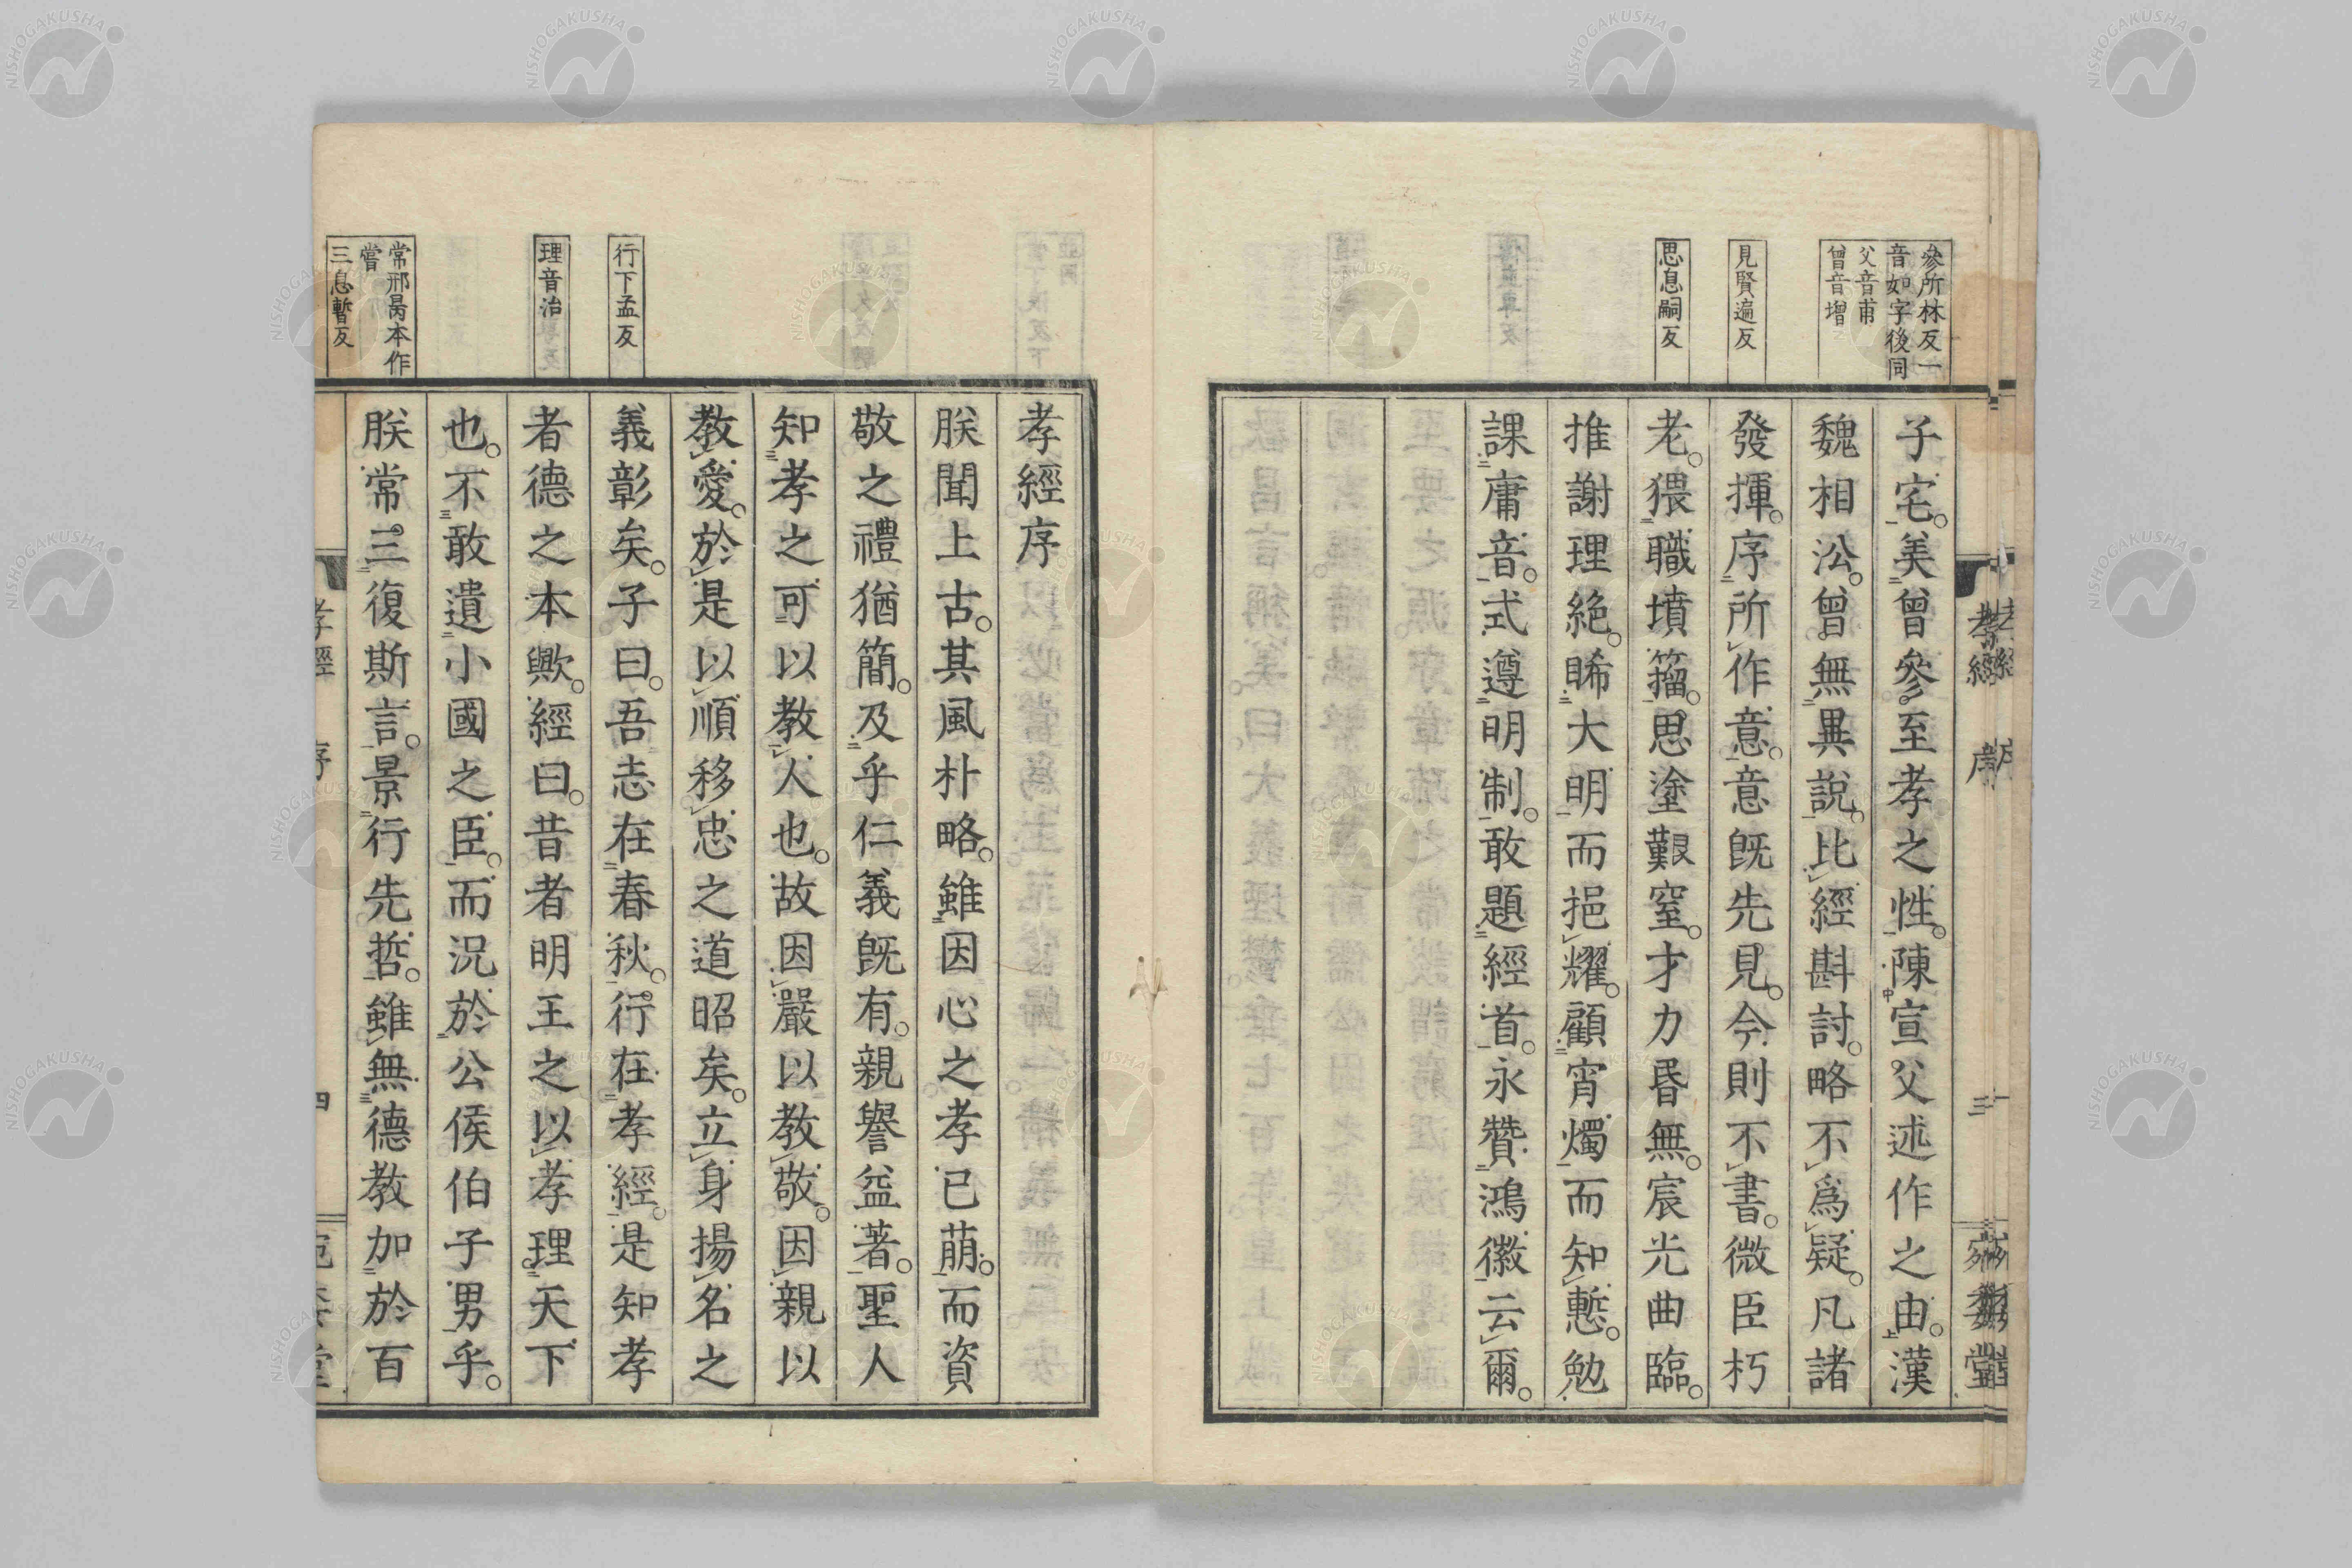 參所林反一
音如字後同
父音甫
曾音增
見賢遍反
思息嗣反
子宅。美曾參至孝之性。陳宣父述作之由。漢
魏相沿。曾無異說。比經斟討。略不爲疑。凡諸
發揮。序所作意。意旣先見。今則不書。微臣朽
老。猥職墳籀。思塗艱窒。才力昬無。宸光曲臨。
推謝理絶。睎大明而挹耀。顧宵燭而知慙。勉
課庸音。式遵明制。敢題經首。永贊鴻徽云爾。
孝經 序
三
行下孟反
理音治
常邢昺本作
嘗
三息暫反
孝經序
朕聞上古。其風朴略。雖因心之孝已萠。而資
敬之禮猶簡。及乎仁義旣有。親譽益著。聖人
知孝之可以教人也。故因嚴以教敬。因親以
教愛。於是以順移忠之道昭矣。立身揚名之
義彰矣。子曰。吾志在春秋。行在孝經。是知孝
者德之本歟。經曰。昔者明王之以孝理天下
也。不敢遺小國之臣。而況於公侯伯子男乎。
朕常三復斯言。景行先哲。雖無德教加於百
孝經 序
四
NISHOGAKUSHA